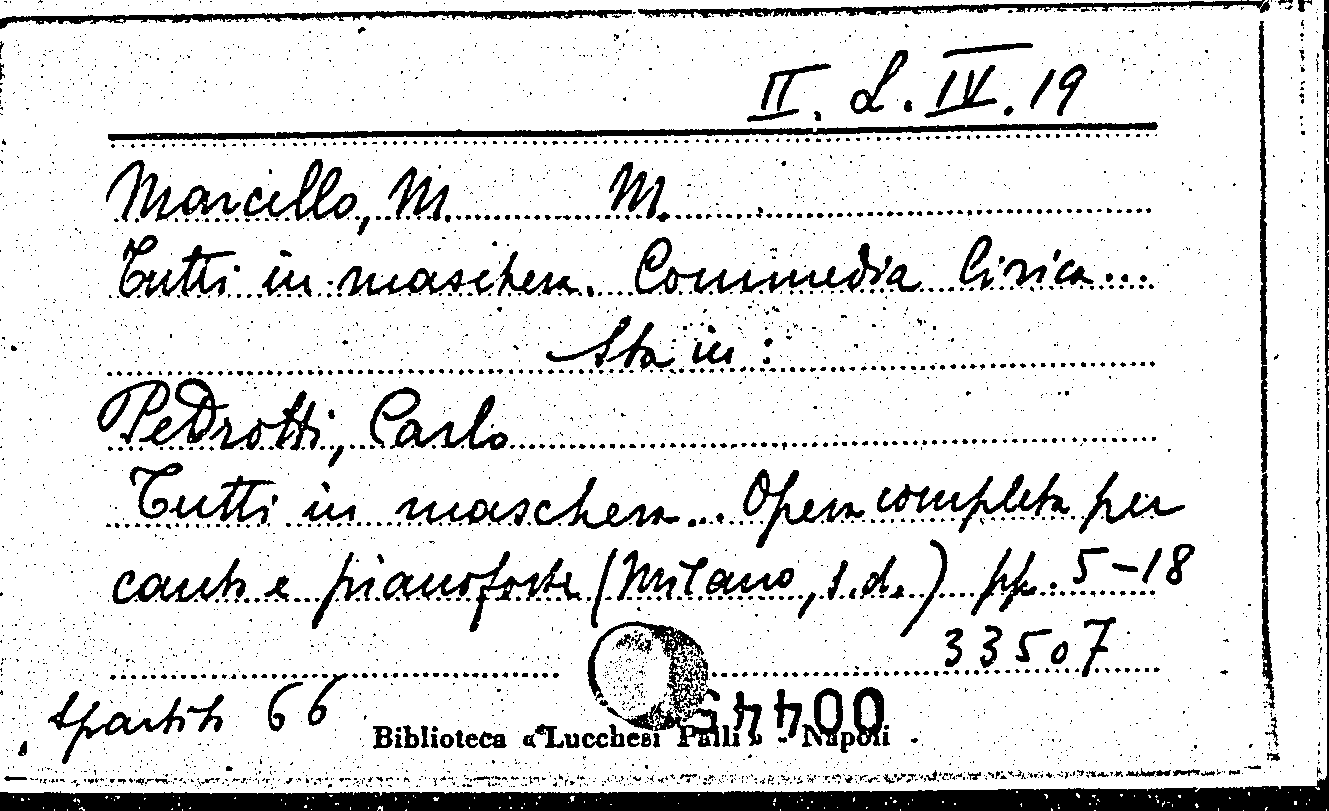 II. L. IV. 19
Marcello, M. M.
Tutti in maschera. Commedia lirica...
Sta in:
Pedrotti, Carlo
Tutti in maschera... Opera completa per
canto e pianoforte (Milano, s.d.) pp. 5-18
33507
Spartiti 66
Biblioteca «Lucchesi Palli» - Napoli